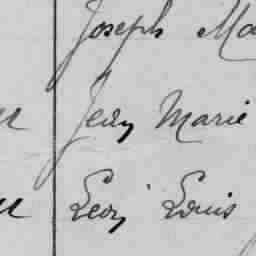 Joseph Ma
Jean Marie
Léon Louis